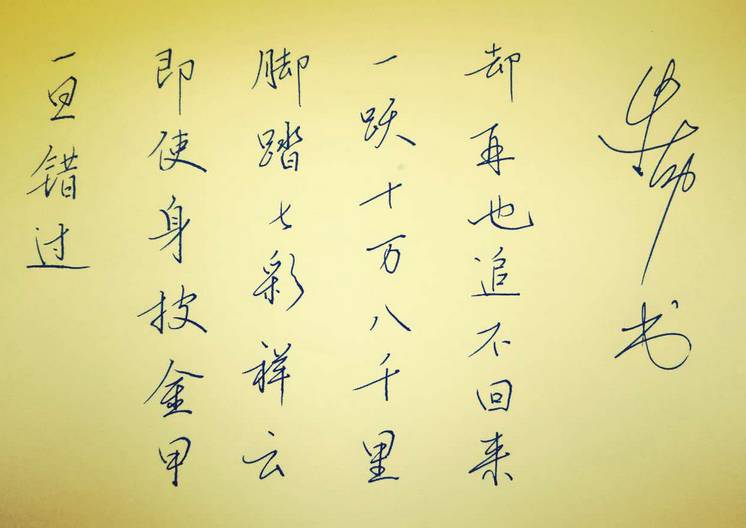 一旦错过
即使身披金甲
脚踏七彩祥云
一跃十万八千里
却再也追不回来
书